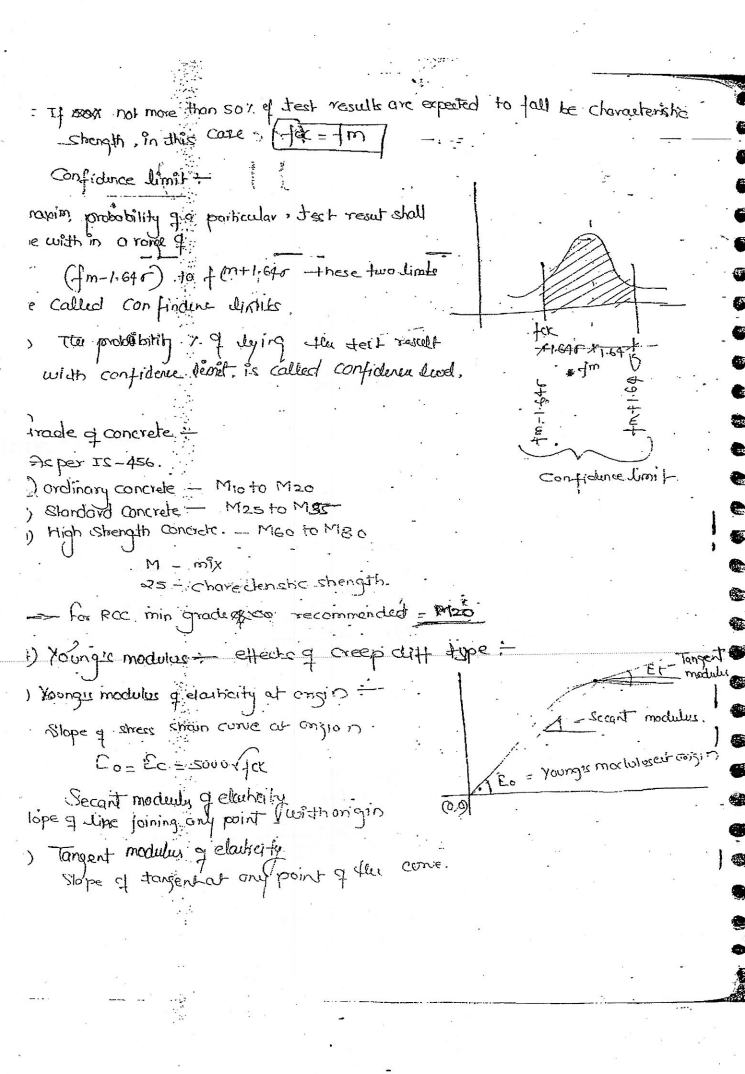 : If not more than 50% of test results are expected to fall be characteristic
strength, in this case, fck = fm
Confidence limit :-
probability of a particular, test resut shall
e with in a range of
(fm-1.64σ) to f(m+1.64σ these two limits
e called confindene limits.
) The probability % of lying the test result
with confidence limit. is called confidence level,
fck
1.64σ 1.64
fm
fm-1.64σ
fm+1.6σ
Confidence limit.
trade of concrete :-
As per IS-456.
) ordinary concrete - M10 to M20
) Standard Concrete - M25 to M55
) High Strength Concrete. - M60 to M80
M - mix
25 - charecteristic strength.
=> for RCC min grade of co recommended = M20
:) Young's modulus :- effects of creep diff type :-
) Youngis modulus of elasticity at origin :-
Slope of stress strain curve at origion.
E0 = Ec = 5000√fck
Secant moduly of elasticity
lope of line joining any point with origin
) Tangent modulus of elasticity
Slope of tangent at any point of the curve.
Et - Tangent
modulus
- Secant modulus.
E0 = Youngs modulus at origin
(0,0)